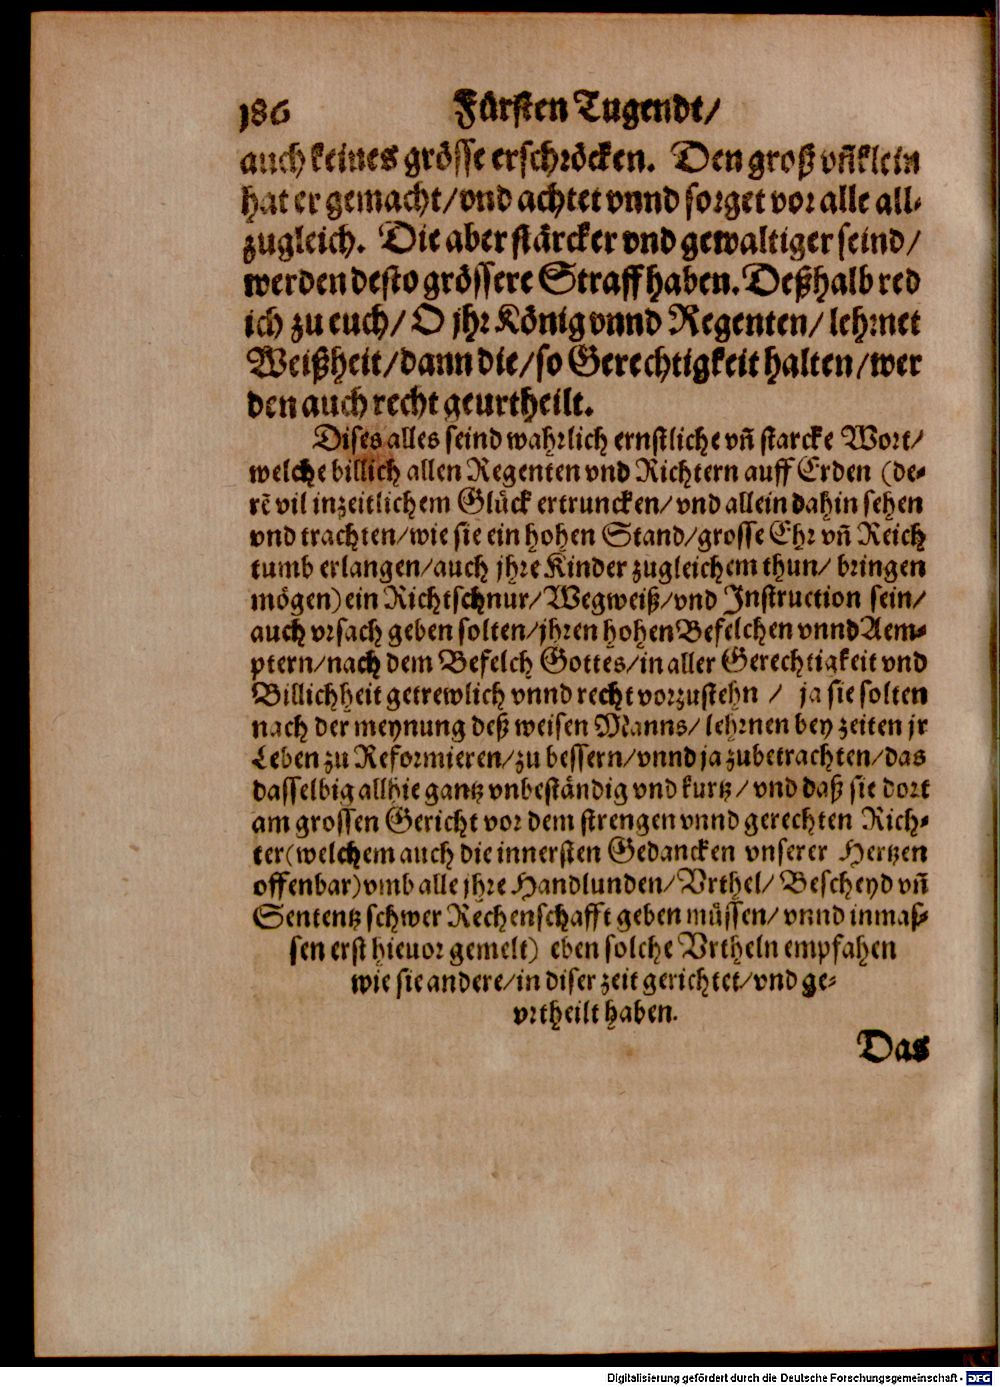 186 Fürsten Tugendt/
auch keines grösse erschröcken. Den groß vñ klein
hat er gemacht/vnd achtet vnnd sorget vor alle all-
zugleich. Die aber stärcker vnd gewaltiger seind/
werden desto grössere Straff haben. Deßhalb red
ich zu euch/ O jhr König vnnd Regenten/ lehrnet
Weißheit/dann die/so Gerechtigkeit halten/wer
den auch recht geurtheilt.
Dises alles seind wahrlich ernstliche vñ starcke Wort/
welche billich allen Regenten vnd Richtern auff Erden (de-
rẽ vil in zeitlichem Glück ertruncken/ vnd allein dahin sehen
vnd trachten/wie sie ein hohen Stand/grosse Ehr vñ Reich
tumb erlangen/auch jhre Kinder zugleichem thun/ bringen
mögen) ein Richtschnur/Wegweiß/vnd Instruction sein/
auch vrsach geben solten/jhren hohen Befelchen vnnd Aem-
ptern/nach dem Befelch Gottes/in aller Gerechtigkeit vnd
Billichheit getrewlich vnnd recht vorzustehn / ja sie solten
nach der meynung deß weisen Manns/ lehrnen bey zeiten jr
Leben zu Reformieren/zu bessern/vnnd ja zubetrachten/das
dasselbig allhie gantz vnbeständig vnd kurtz/ vnd daß sie dort
am grossen Gericht vor dem strengen vnnd gerechten Rich-
ter(welchem auch die innersten Gedancken vnserer Hertzen
offenbar) vmb alle jhre Handlunden/ Vrthel/ Bescheyd vñ
Sententz schwer Rechenschafft geben müssen/ vnnd inmaß-
sen erst hieuor gemelt) eben solche Vrtheln empfahen
wie sie andere/in diser zeit gerichtet/vnd ge-
vrtheilt haben.
Das
Digitalisierung gefördert durch die Deutsche Forschungsgemeinschaft - DFG